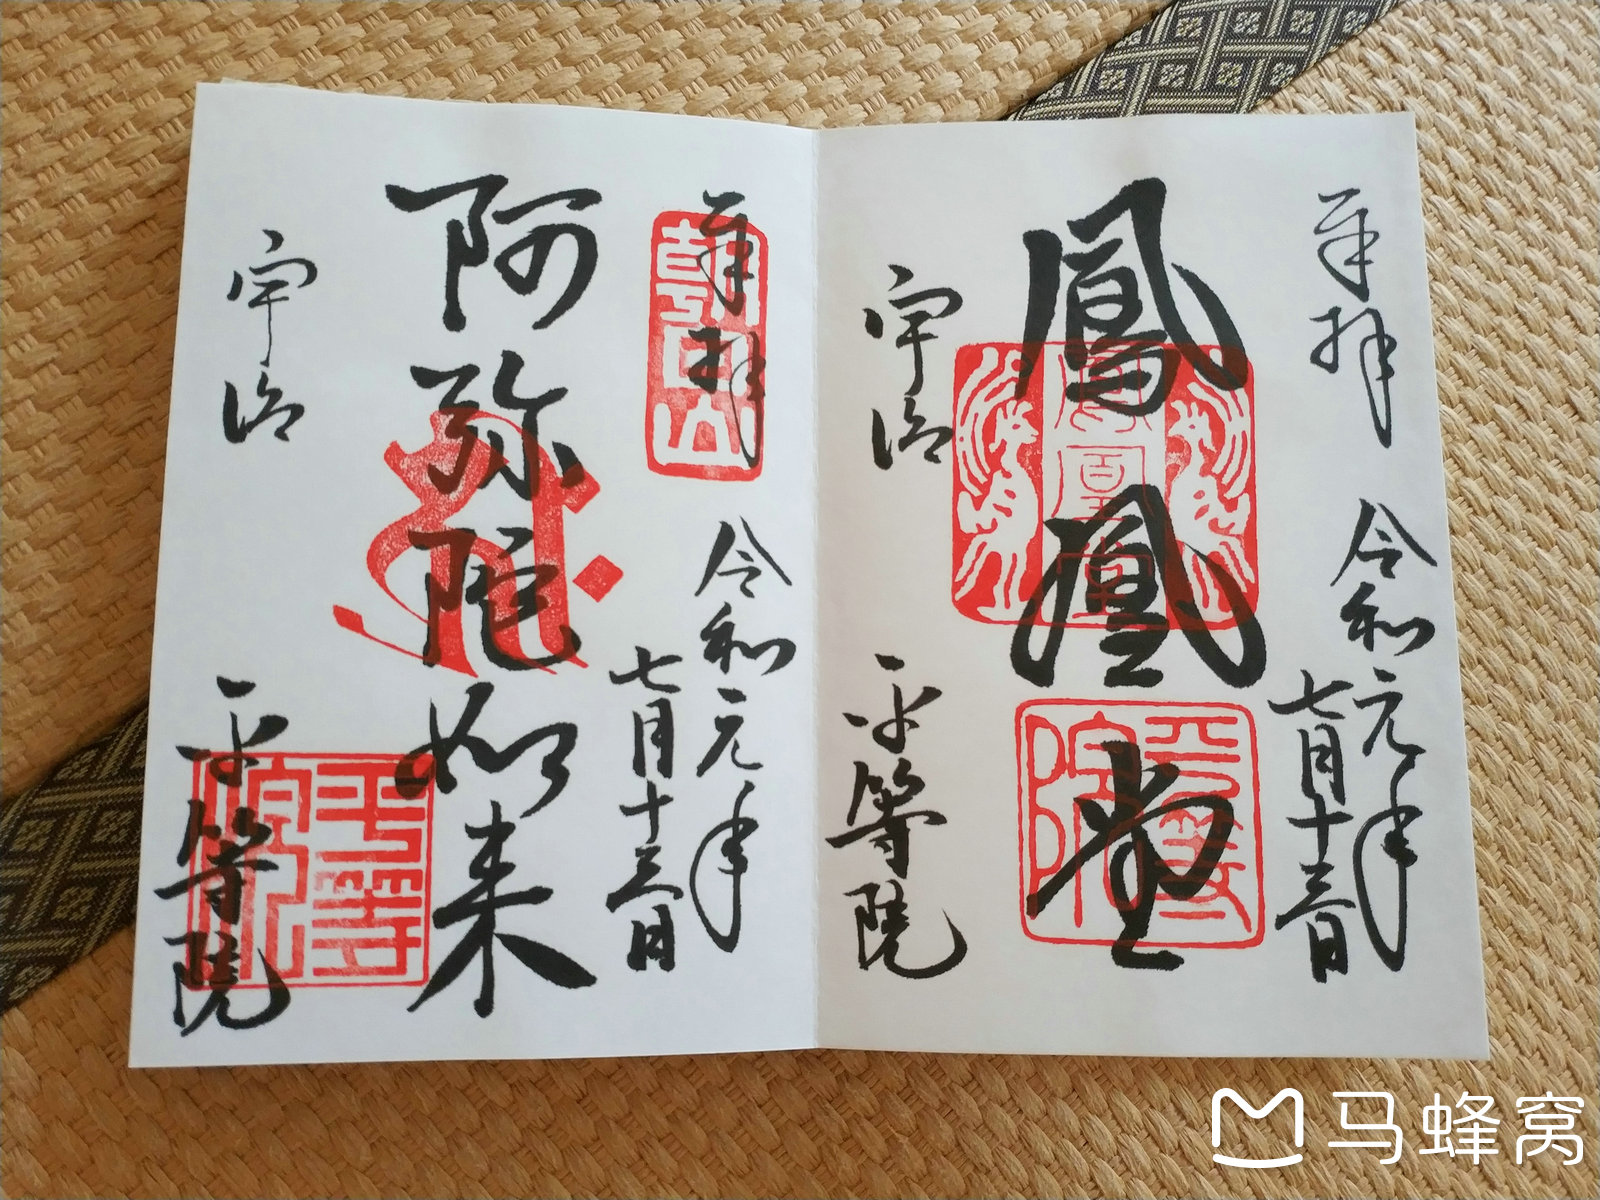 奉拝
令和元年
七月十三日
鳳凰堂
鳳凰堂
平等院
宇治
平等院
奉拝
朝日山
令和元年
七月十三日
阿弥陀如来
平等院
宇治
平等院
马蜂窝